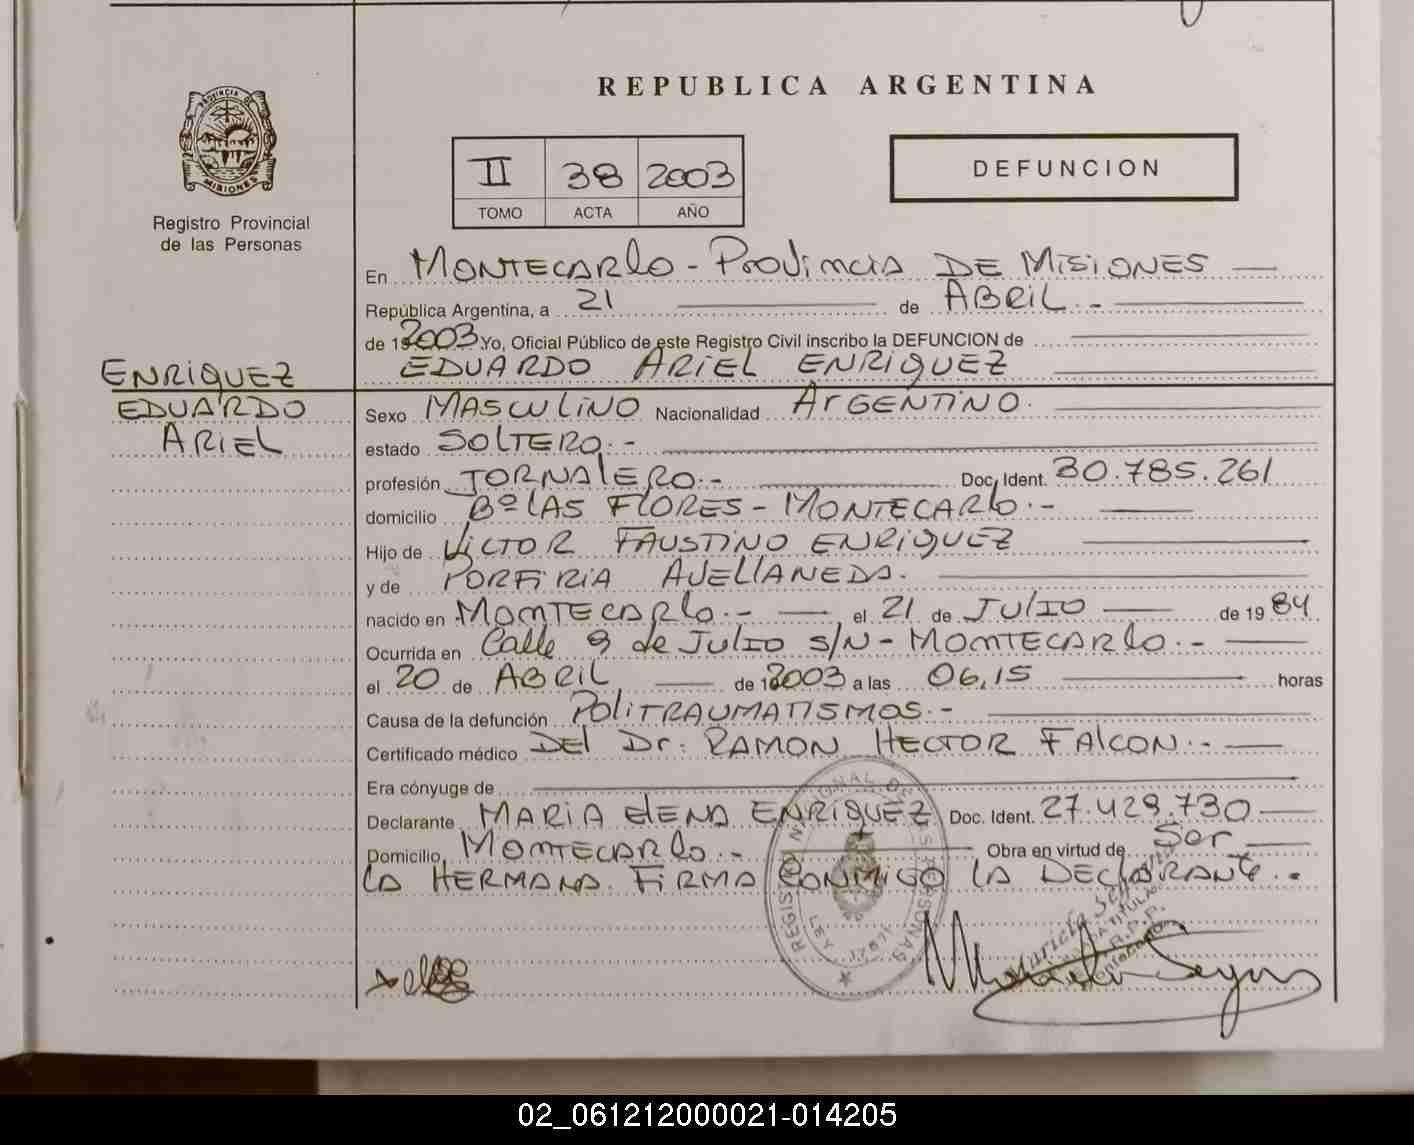 REPUBLICA ARGENTINA
PROVINCIA DE
MISIONES
Registro Provincial
de las Personas
II 38 2003
TOMO ACTA AÑO
DEFUNCION
En MONTECARLO - PROVINCIA DE MISIONES
República Argentina, a 21 de ABRIL.-
de 19 2003 Yo, Oficial Público de este Registro Civil inscribo la DEFUNCION de
EDUARDO ARIEL ENRIQUEZ
ENRIQUEZ
EDUARDO
ARIEL
Sexo MASCULINO Nacionalidad ARGENTINO.
estado SOLTERO.-
profesión JORNALERO.- Doc. Ident. 30.785.261
domicilio Bº LAS FLORES - MONTECARLO.-
Hijo de VICTOR FAUSTINO ENRIQUEZ
y de PORFIRIA AVELLANEDA.
nacido en MONTECARLO.- el 21 de JULIO de 19 84
Ocurrida en Calle 9 de JULIO S/N - MONTECARLO.-
el 20 de ABRIL de 2003 a las 06,15 horas
Causa de la defunción POLITRAUMATISMOS.-
Certificado médico DEL Dr: RAMON HECTOR FALCON.-
Era cónyuge de
Declarante MARIA ELENA ENRIQUEZ Doc. Ident. 27.429.730
Domicilio MONTECARLO.- Obra en virtud de Ser
LA HERMANA. FIRMA CONMIGO LA DECLARANTE.-
02_061212000021-014205